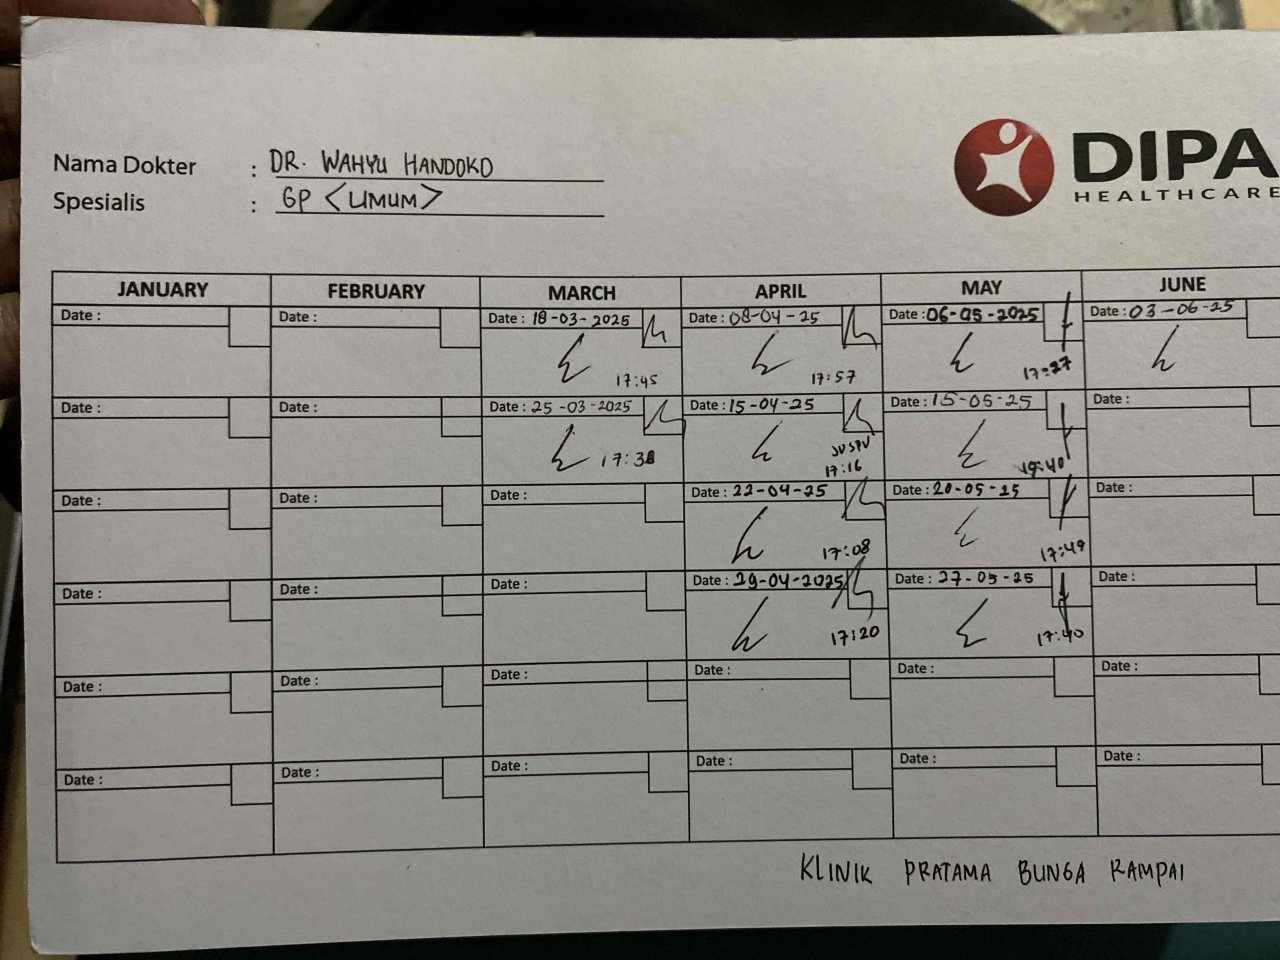 Nama Dokter : DR. WAHYU HANDOKO
Spesialis : GP <UMUM>
DIPA
HEALTHCARE
JANUARY FEBRUARY MARCH APRIL MAY JUNE
Date : Date : Date : 18-03-2025 Date : 08-04-25 Date : 06-05-2025 Date : 03-06-25
17:45 17:57 17:37
Date : Date : Date : 25-03-2025 Date : 15-04-25 Date : 15-05-25 Date :
17:38 17:16 19:40
Date : Date : Date : Date : 22-04-25 Date : 20-05-25 Date :
17:08 17:49
Date : Date : Date : Date : 29-04-2025 Date : 27-05-25 Date :
17:20 17:40
Date : Date : Date : Date : Date : Date :
Date : Date : Date : Date : Date : Date :
KLINIK PRATAMA BUNGA RAMPAI